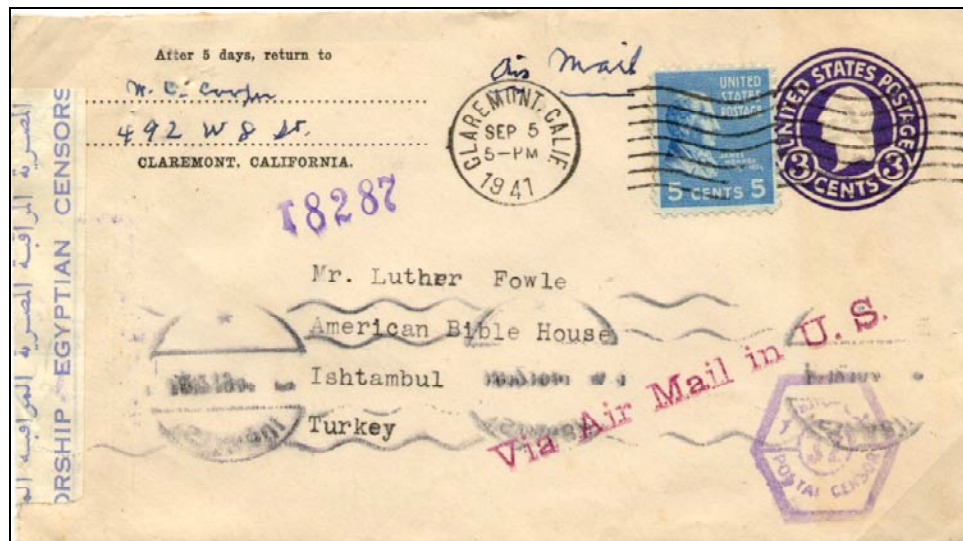 After 5 days, return to
492 W 8 St.
CLAREMONT, CALIFORNIA.
Air Mail
CLAREMONT, CALIF.
SEP 5
5-PM
1941
UNITED
STATES
POSTAGE
JAMES
MONROE
5 CENTS 5
UNITED STATES POSTAGE
3 CENTS 3
18287
Mr. Luther Fowle
American Bible House
Ishtambul
Turkey
Via Air Mail in U. S.
POSTAL CENSOR
ORSHIP EGYPTIAN CENSORS
المصرية المراقبة المصرية المراقبة